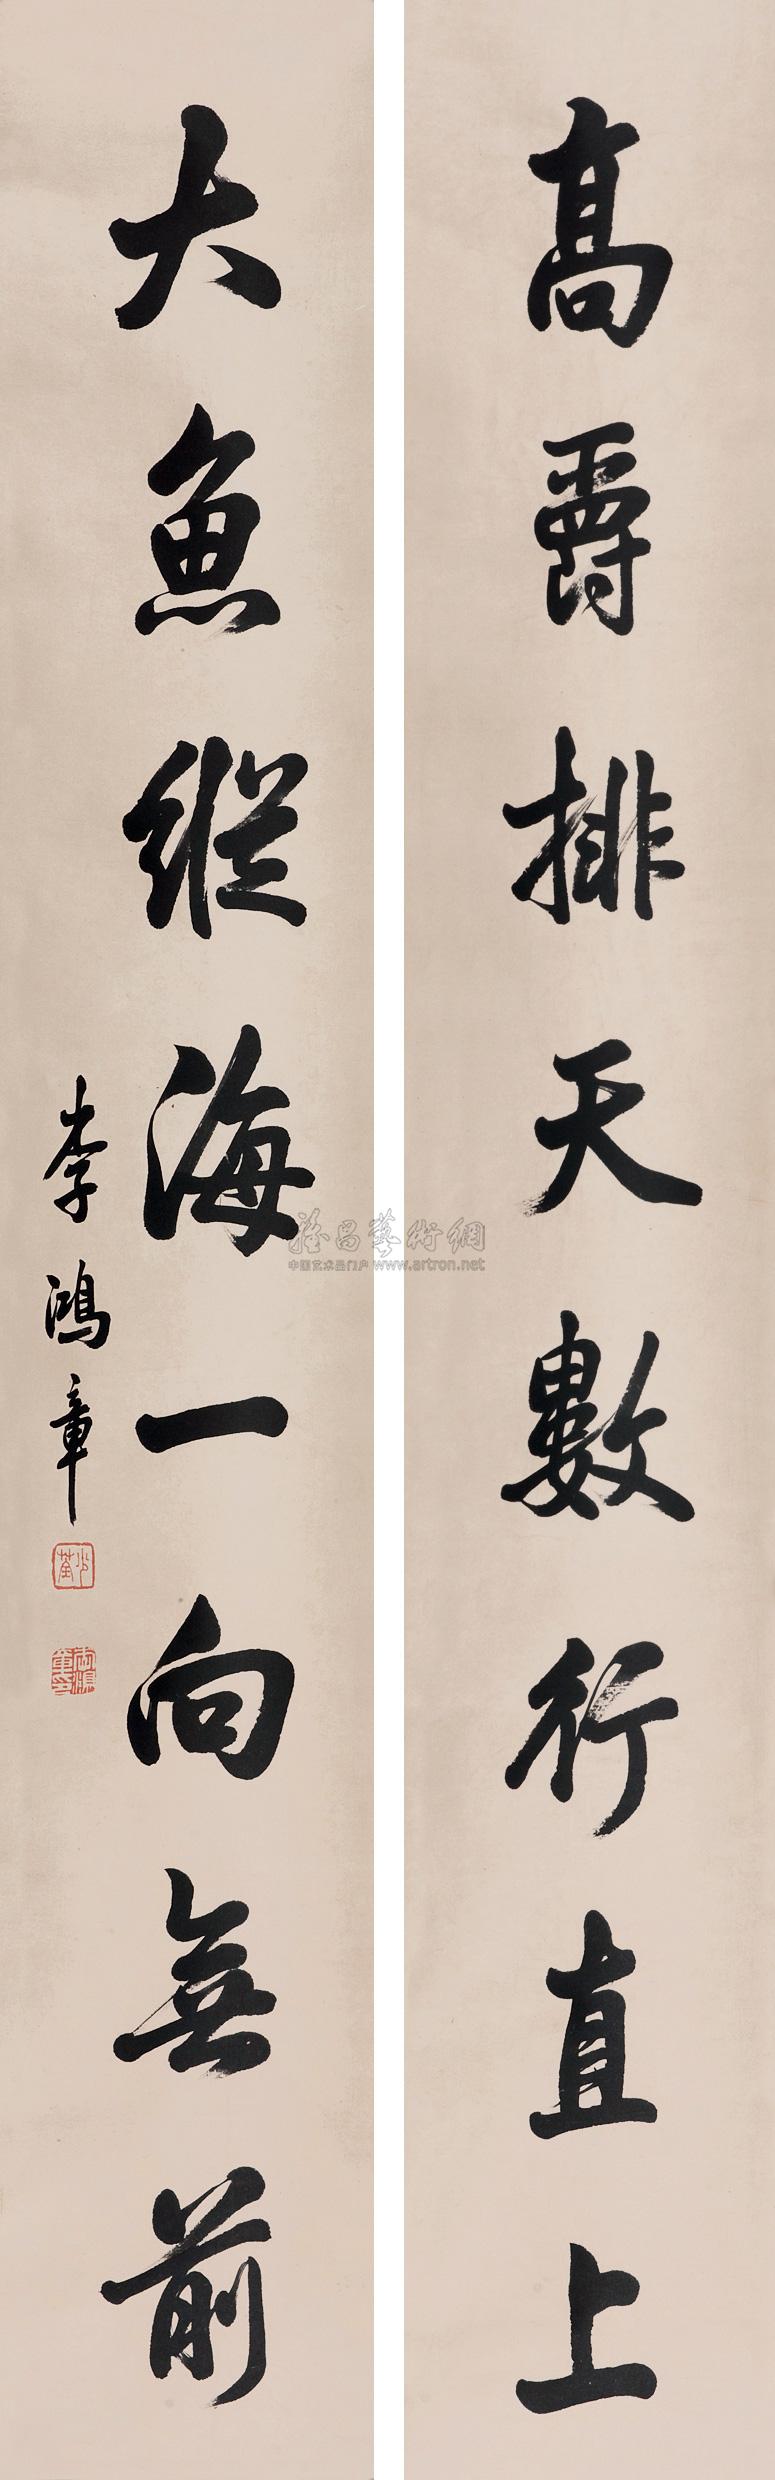 高爵排天數行直上
大魚縱海一向無前
李鴻章
少荃
雅昌藝術網
中国艺术品门户 www.artron.net